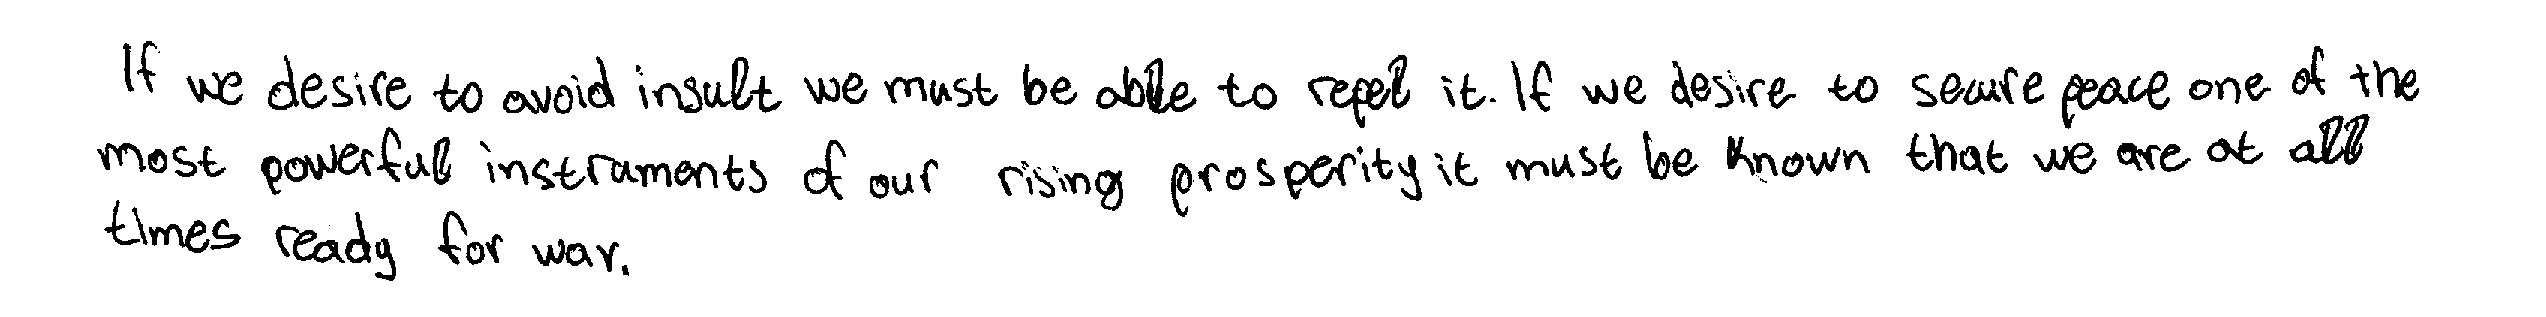 If we desire to avoid insult we must be able to repel it. If we desire to secure peace one of the
most powerful instraments of our rising prosperity it must be known that we are at all
times ready for war.